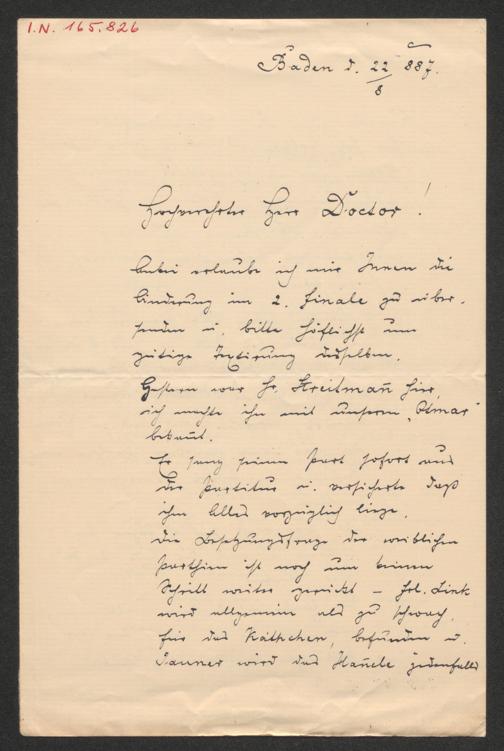 I.N. 165.826
Baden d. 22/8 887.
Hochverehrter Herr Doctor!
Anbei erlaube ich mir Ihnen die
Änderung im 2. Finale zu über-
senden u. bitte höflichst um
gütige Textirung desselben.
Gestern war Hr. Streitmann hier,
ich machte ihn mit unserem „Otmar"
bekannt.
Er sang seinen Part sofort aus
der Partitur u. versicherte daß
ihm Alles vorzüglich liege.
Die Besetzungsfrage der weiblichen
Parthien ist noch um keinen
Schritt weiter gerückt – Frl. Link
wird allgemein als zu schwach,
für das Käthchen, befunden u.
wird das Hannele jedenfalls